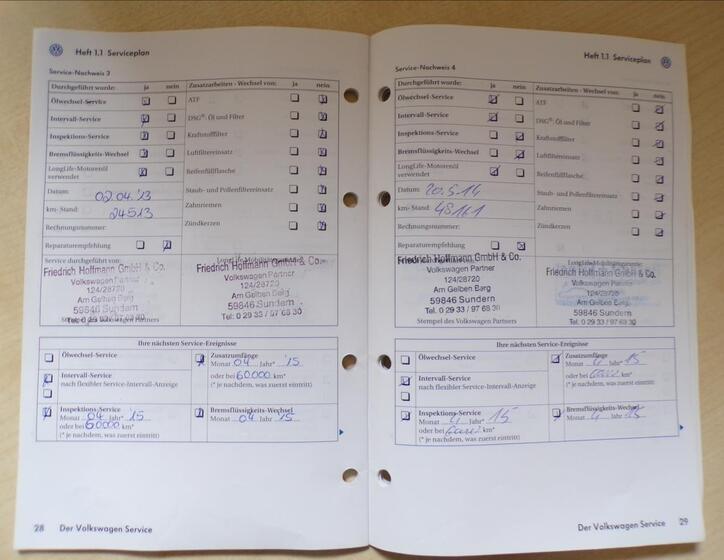 Heft 1.1 Serviceplan
Service-Nachweis 3
Durchgeführt wurde: ja nein Zusatzarbeiten - Wechsel von: ja nein
Ölwechsel-Service ATF
Intervall-Service DSG®: Öl und Filter
Inspektions-Service Kraftstofffilter
Bremsflüssigkeits-Wechsel Luftfiltereinsatz
LongLife-Motorenöl Reifenfüllflasche
verwendet
Datum: 02.04.'13 Staub- und Pollenfiltereinsatz
km-Stand: 24513 Zahnriemen
Rechnungsnummer: Zündkerzen
Reparaturempfehlung
Service durchgeführt von:
Friedrich Hoffmann GmbH & Co. Friedrich Hoffmann GmbH & Co.
Volkswagen Partner Volkswagen Partner
124/28720 124/28720
Am Gelben Berg Am Gelben Berg
59846 Sundern 59846 Sundern
Tel. 0 29 33 / 97 68 30
Ihre nächsten Service-Ereignisse
Ölwechsel-Service Zusatzumfänge
Monat 04 Jahr '15
Intervall-Service oder bei 60000 km*
nach flexibler Service-Intervall-Anzeige (* je nachdem, was zuerst eintritt)
Inspektions-Service Bremsflüssigkeits-Wechsel
Monat 04 Jahr '15 Monat 04 Jahr '15
oder bei 60000 km*
(* je nachdem, was zuerst eintritt)
28 Der Volkswagen Service
Heft 1.1 Serviceplan
Service-Nachweis 4
Durchgeführt wurde: ja nein Zusatzarbeiten - Wechsel von: ja nein
Ölwechsel-Service ATF
Intervall-Service DSG®: Öl und Filter
Inspektions-Service Kraftstofffilter
Bremsflüssigkeits-Wechsel Luftfiltereinsatz
LongLife-Motorenöl Reifenfüllflasche
verwendet
Datum: 20.5.14 Staub- und Pollenfiltereinsatz
km-Stand: 48161 Zahnriemen
Rechnungsnummer: Zündkerzen
Reparaturempfehlung
Friedrich Hoffmann GmbH & Co. Friedrich Hoffmann GmbH & Co.
Volkswagen Partner Volkswagen Partner
124/28720 124/28720
Am Gelben Berg Am Gelben Berg
59846 Sundern 59846 Sundern
Tel. 0 29 33 / 97 68 30 Tel. 0 29 33 / 97 68 30
Stempel des Volkswagen Partners
Ihre nächsten Service-Ereignisse
Ölwechsel-Service Zusatzumfänge
Monat 4 Jahr 15
Intervall-Service oder bei km*
nach flexibler Service-Intervall-Anzeige (* je nachdem, was zuerst eintritt)
Inspektions-Service Bremsflüssigkeits-Wechsel
Monat 4 Jahr 15 Monat 4 Jahr 15
oder bei km*
(* je nachdem, was zuerst eintritt)
Der Volkswagen Service 29